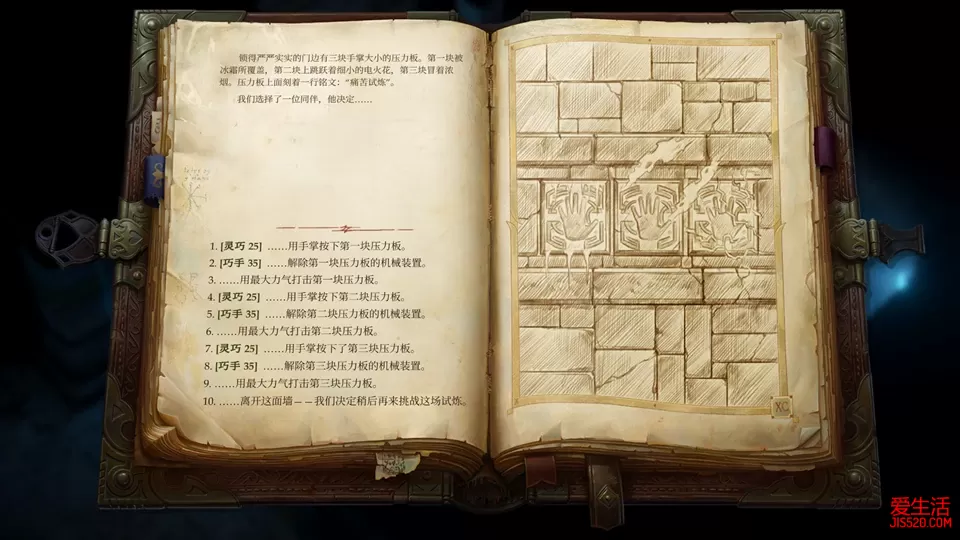 锁得严严实实的门边有三块手掌大小的压力板。第一块被
冰霜所覆盖，第二块上跳跃着细小的电火花，第三块冒着浓
烟。压力板上面刻着一行铭文：“痛苦试炼”。
我们选择了一位同伴，他决定……
1. [灵巧 25] ……用手掌按下第一块压力板。
2. [巧手 35] ……解除第一块压力板的机械装置。
3. ……用最大力气打击第一块压力板。
4. [灵巧 25] ……用手掌按下第二块压力板。
5. [巧手 35] ……解除第二块压力板的机械装置。
6. ……用最大力气打击第二块压力板。
7. [灵巧 25] ……用手掌按下了第三块压力板。
8. [巧手 35] ……解除第三块压力板的机械装置。
9. ……用最大力气打击第三块压力板。
10. ……离开这面墙——我们决定稍后再来挑战这场试炼。
XC
爱生活
JIS520.COM